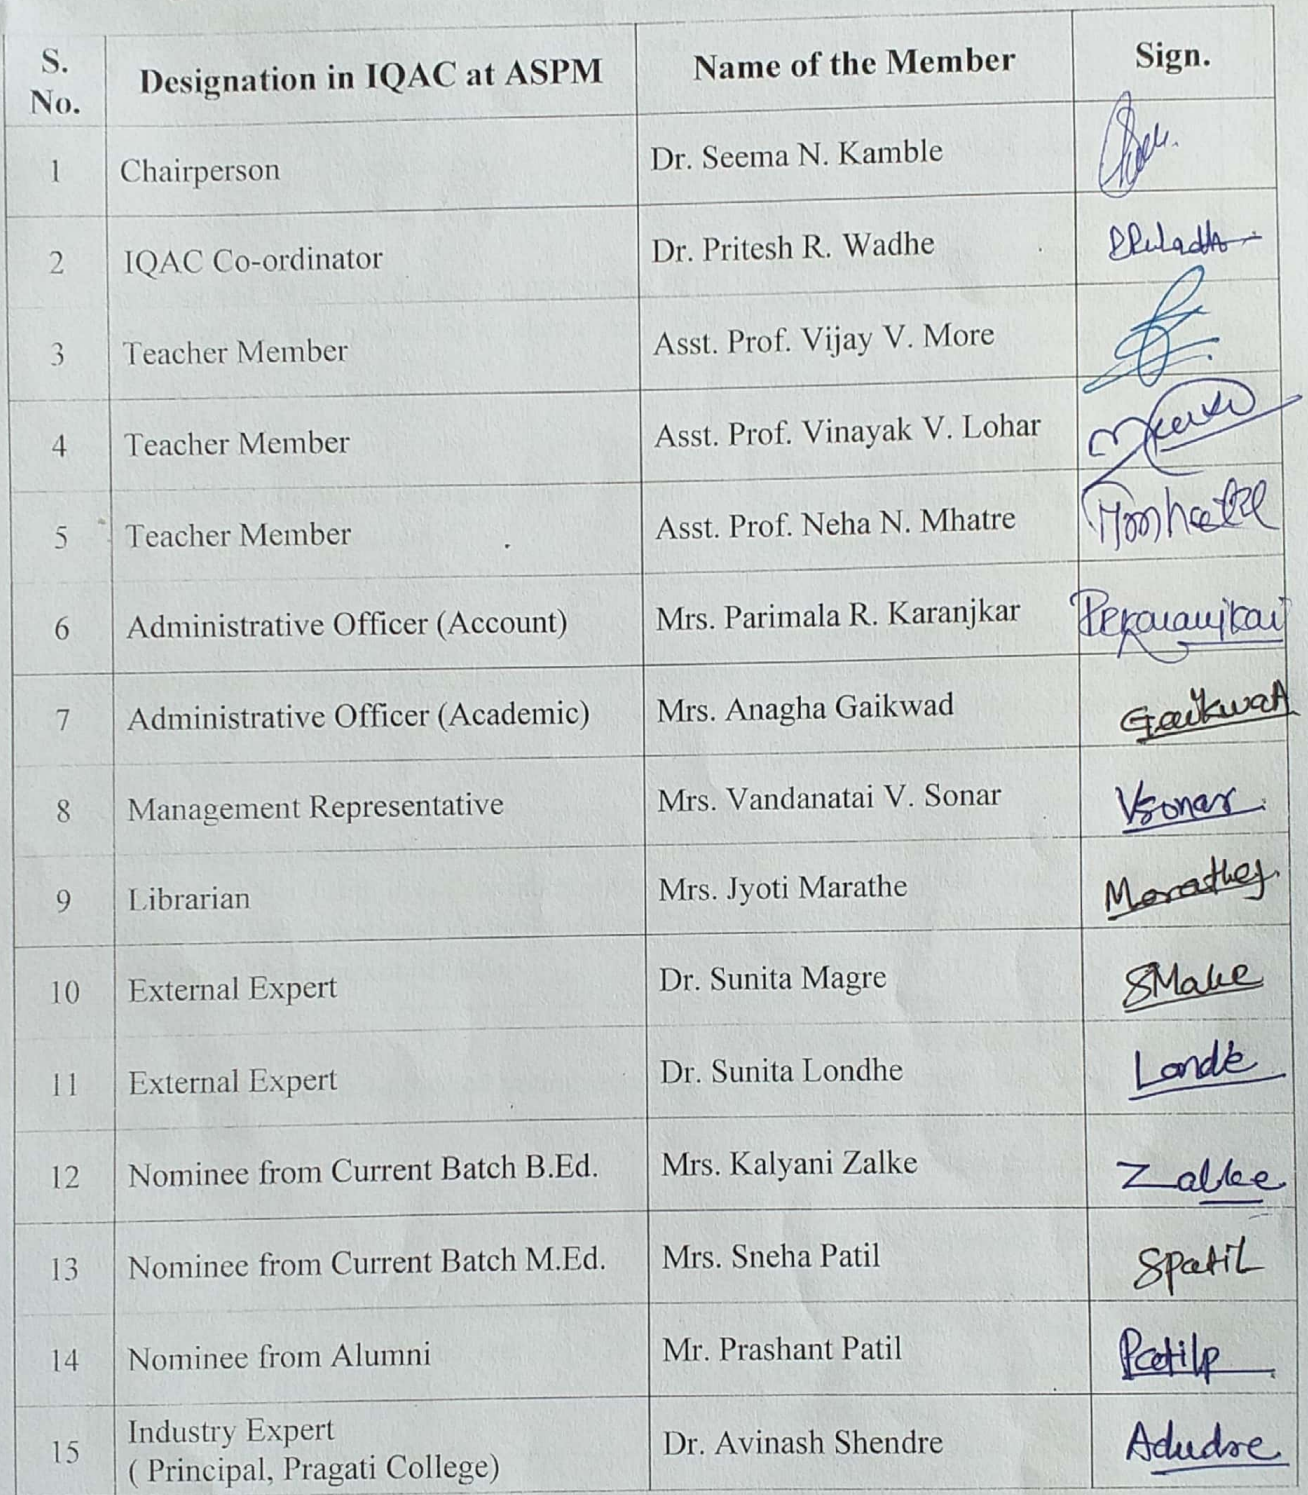 S. No. Designation in IQAC at ASPM Name of the Member Sign.
1 Chairperson Dr. Seema N. Kamble
2 IQAC Co-ordinator Dr. Pritesh R. Wadhe
3 Teacher Member Asst. Prof. Vijay V. More
4 Teacher Member Asst. Prof. Vinayak V. Lohar
5 Teacher Member Asst. Prof. Neha N. Mhatre
6 Administrative Officer (Account) Mrs. Parimala R. Karanjkar
7 Administrative Officer (Academic) Mrs. Anagha Gaikwad Gaikwad
8 Management Representative Mrs. Vandanatai V. Sonar VSonar
9 Librarian Mrs. Jyoti Marathe MaratheJ
10 External Expert Dr. Sunita Magre
11 External Expert Dr. Sunita Londhe
12 Nominee from Current Batch B.Ed. Mrs. Kalyani Zalke Zalke
13 Nominee from Current Batch M.Ed. Mrs. Sneha Patil SPatil
14 Nominee from Alumni Mr. Prashant Patil PatilP
15 Industry Expert
( Principal, Pragati College) Dr. Avinash Shendre